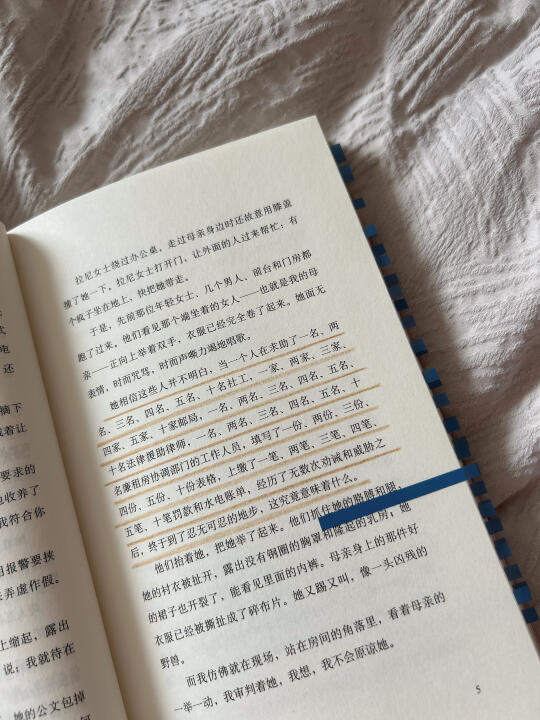 式
电
还
摘下
着让
要求的
也收养了
我符合你
用报警要挟
弄虚作假。
上缩起，露出
说：我就待在
她的公文包掉
拉尼女士绕过办公桌，走过母亲身边时还故意用膝盖
撞了她一下，拉尼女士打开门，让外面的人过来帮忙：有
个疯子坐在地上，快把她带走。
于是，先前那位年轻女士、几个男人、前台和门房都
跑了过来，他们看见那个瘫坐着的女人——也就是我的母
亲——正向上举着双手，衣服已经完全卷了起来。她面无
表情，时而咒骂，时而声嘶力竭地唱歌。
她相信这些人并不明白，当一个人在求助了一名、两
名、三名、四名、五名、十名社工，一家、两家、三家、
四家、五家、十家邮局，一名、两名、三名、四名、五名、
十名法律援助律师，一名、两名、三名、四名、五名、十
名廉租房协调部门的工作人员，填写了一份、两份、三份、
四份、五份、十份表格，上缴了一笔、两笔、三笔、四笔、
五笔、十笔罚款和水电账单，经历了无数次劝诫和威胁之
后，终于到了忍无可忍的地步，这究竟意味着什么。
他们抬着她，把她举了起来。他们抓住她的胳膊和腿，
她的衬衣被扯开，露出没有钢圈的胸罩和隆起的乳房，她
的裙子也开裂了，能看见里面的内裤。母亲身上的那件好
衣服已经被撕扯成了碎布片。她又踢又叫，像一头凶残的
野兽。
而我仿佛就在现场，站在房间的角落里，看着母亲的
一举一动，我审判着她，我想，我不会原谅她。
5